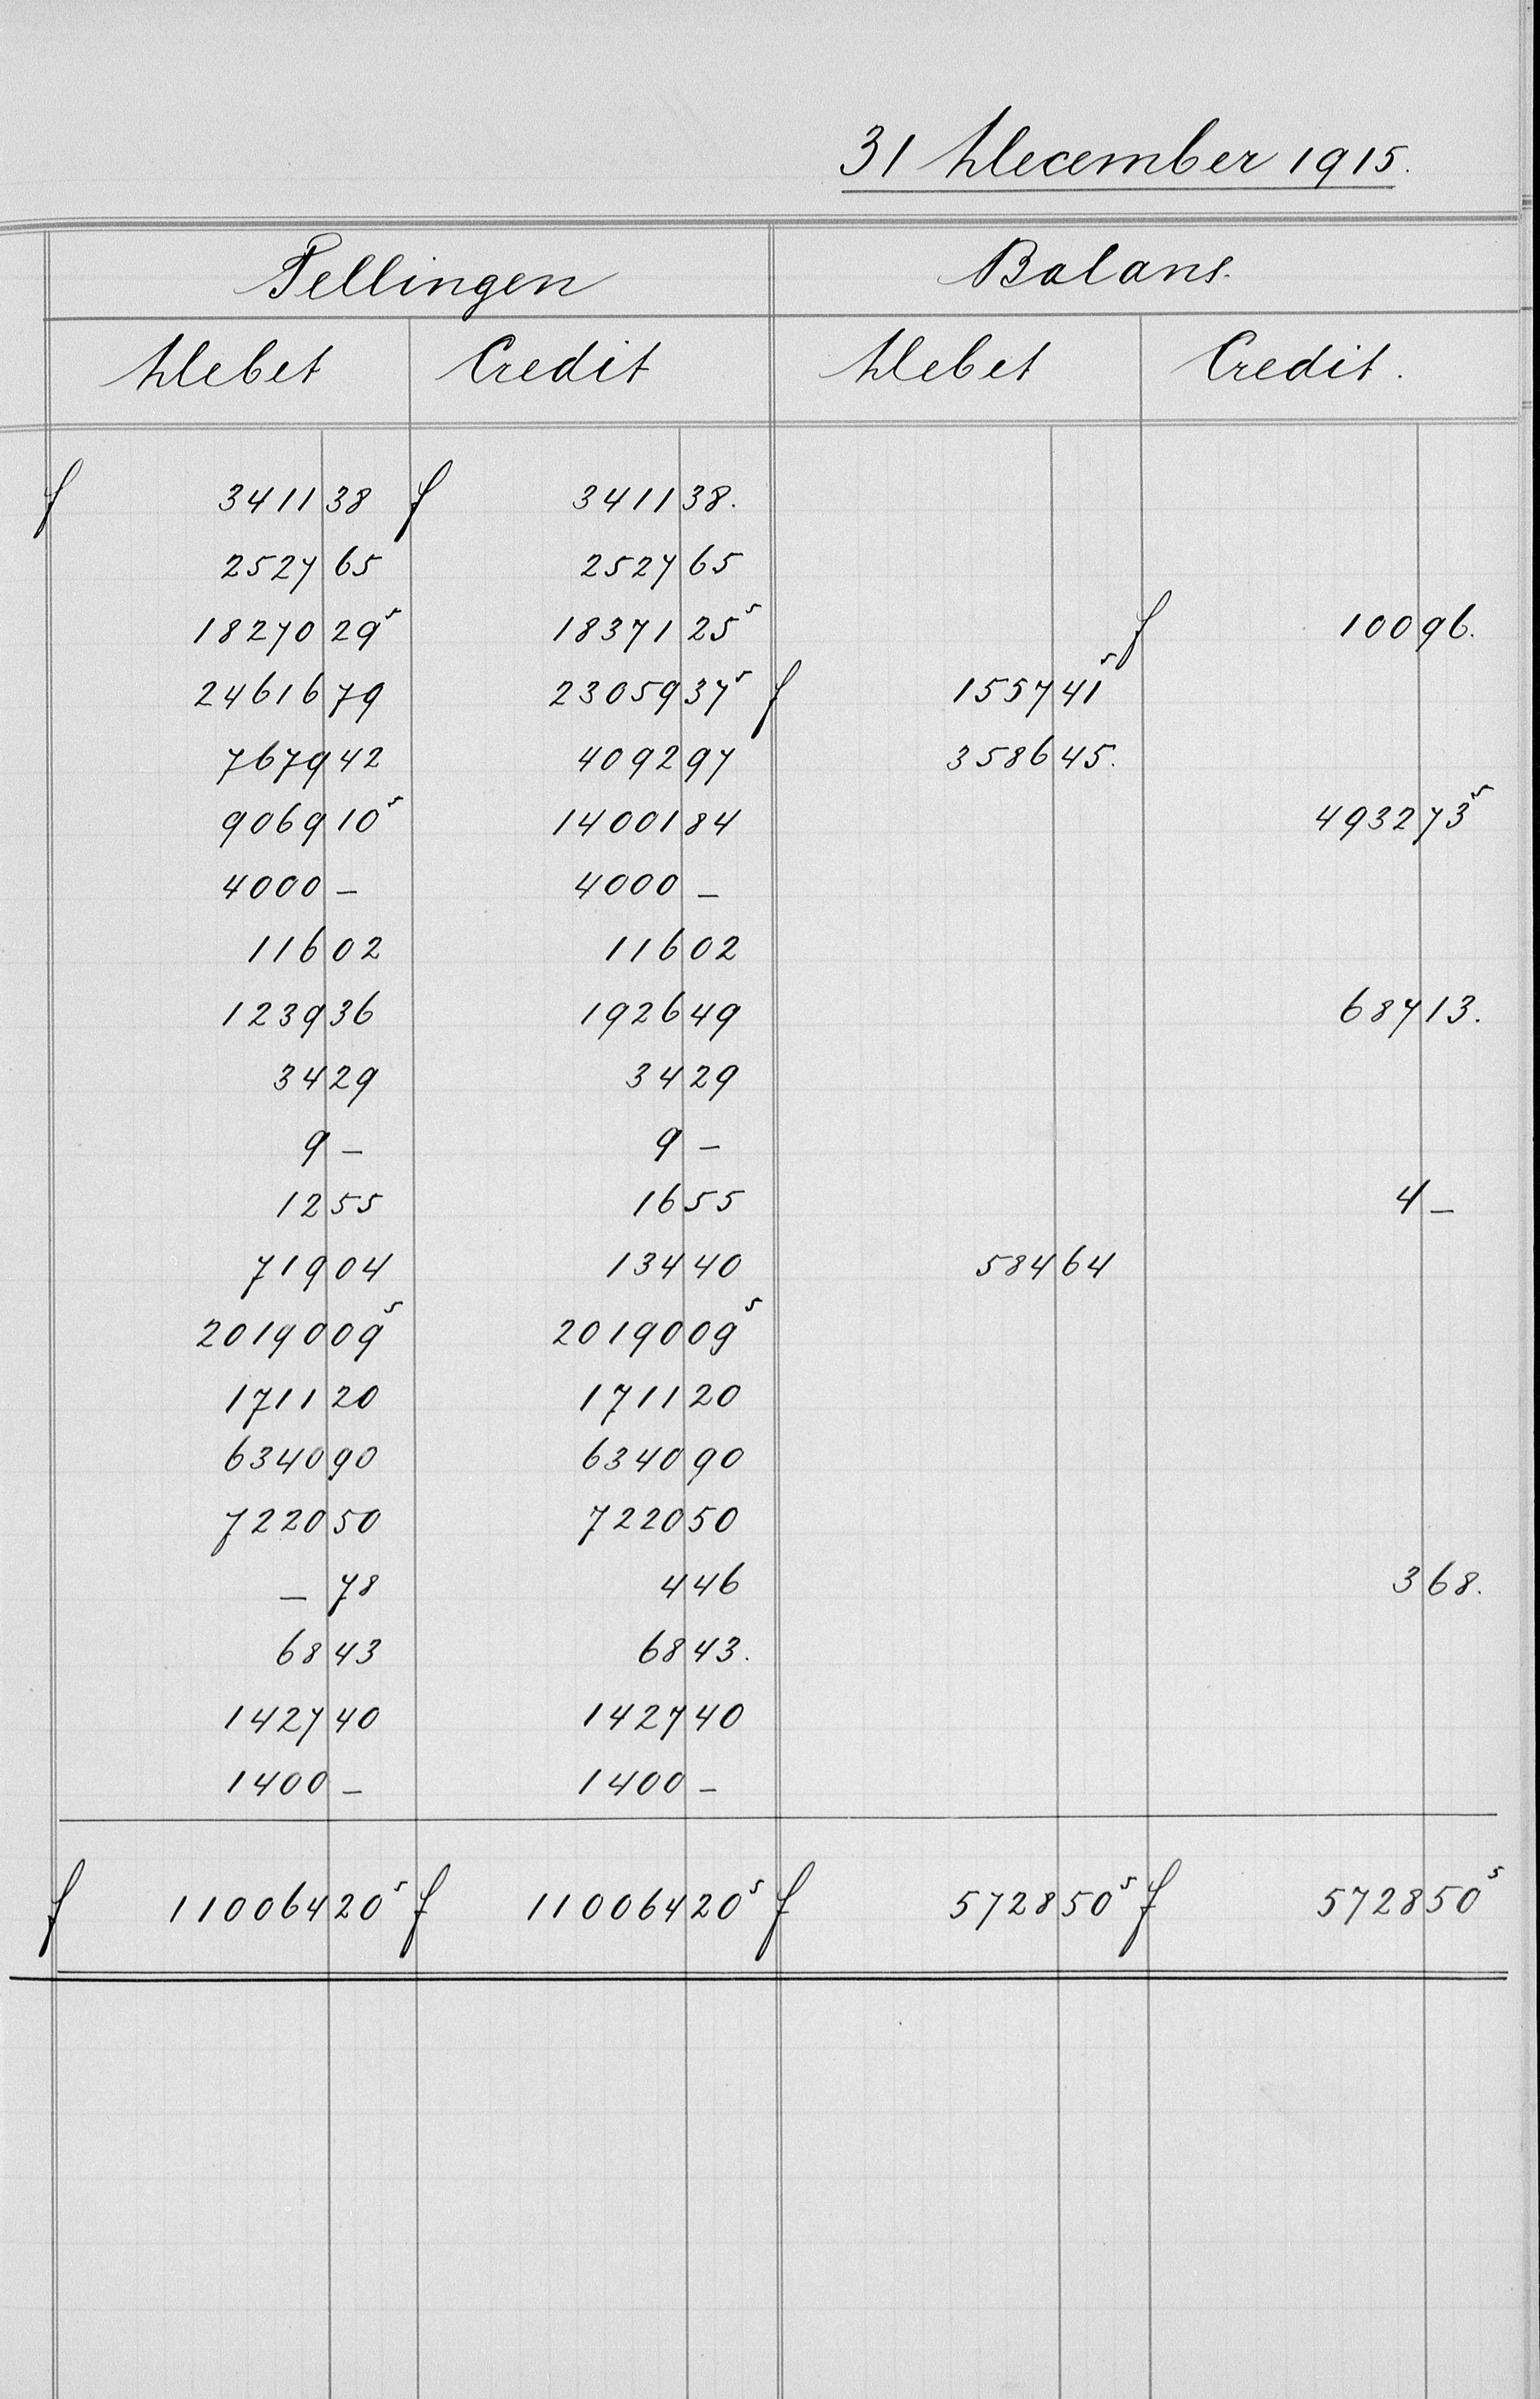 31 December 1915.
Tellingen Balans.
Debet Credit Debet Credit.
f 3411 38 f 3411 38.
2527 65 2527 65
18270 29⁵ 18371 25⁵ f 100 96.
24616 79 23059 37⁵ f 1557 41⁵
7679 42 4092 97 3586 45.
9069 10⁵ 14001 84 4932 73⁵
4000 – 4000 –
116 02 116 02
1239 36 1926 49 687 13.
34 29 34 29
9 – 9 –
12 55 16 55 4 –
719 04 134 40 584 64
20190 09⁵ 20190 09⁵
1711 20 1711 20
6340 90 6340 90
7220 50 7220 50
– 78 4 46 3 68.
68 43 68 43.
1427 40 1427 40
1400 – 1400 –
f 110064 20⁵ f 110064 20⁵ f 5728 50⁵ f 5728 50⁵